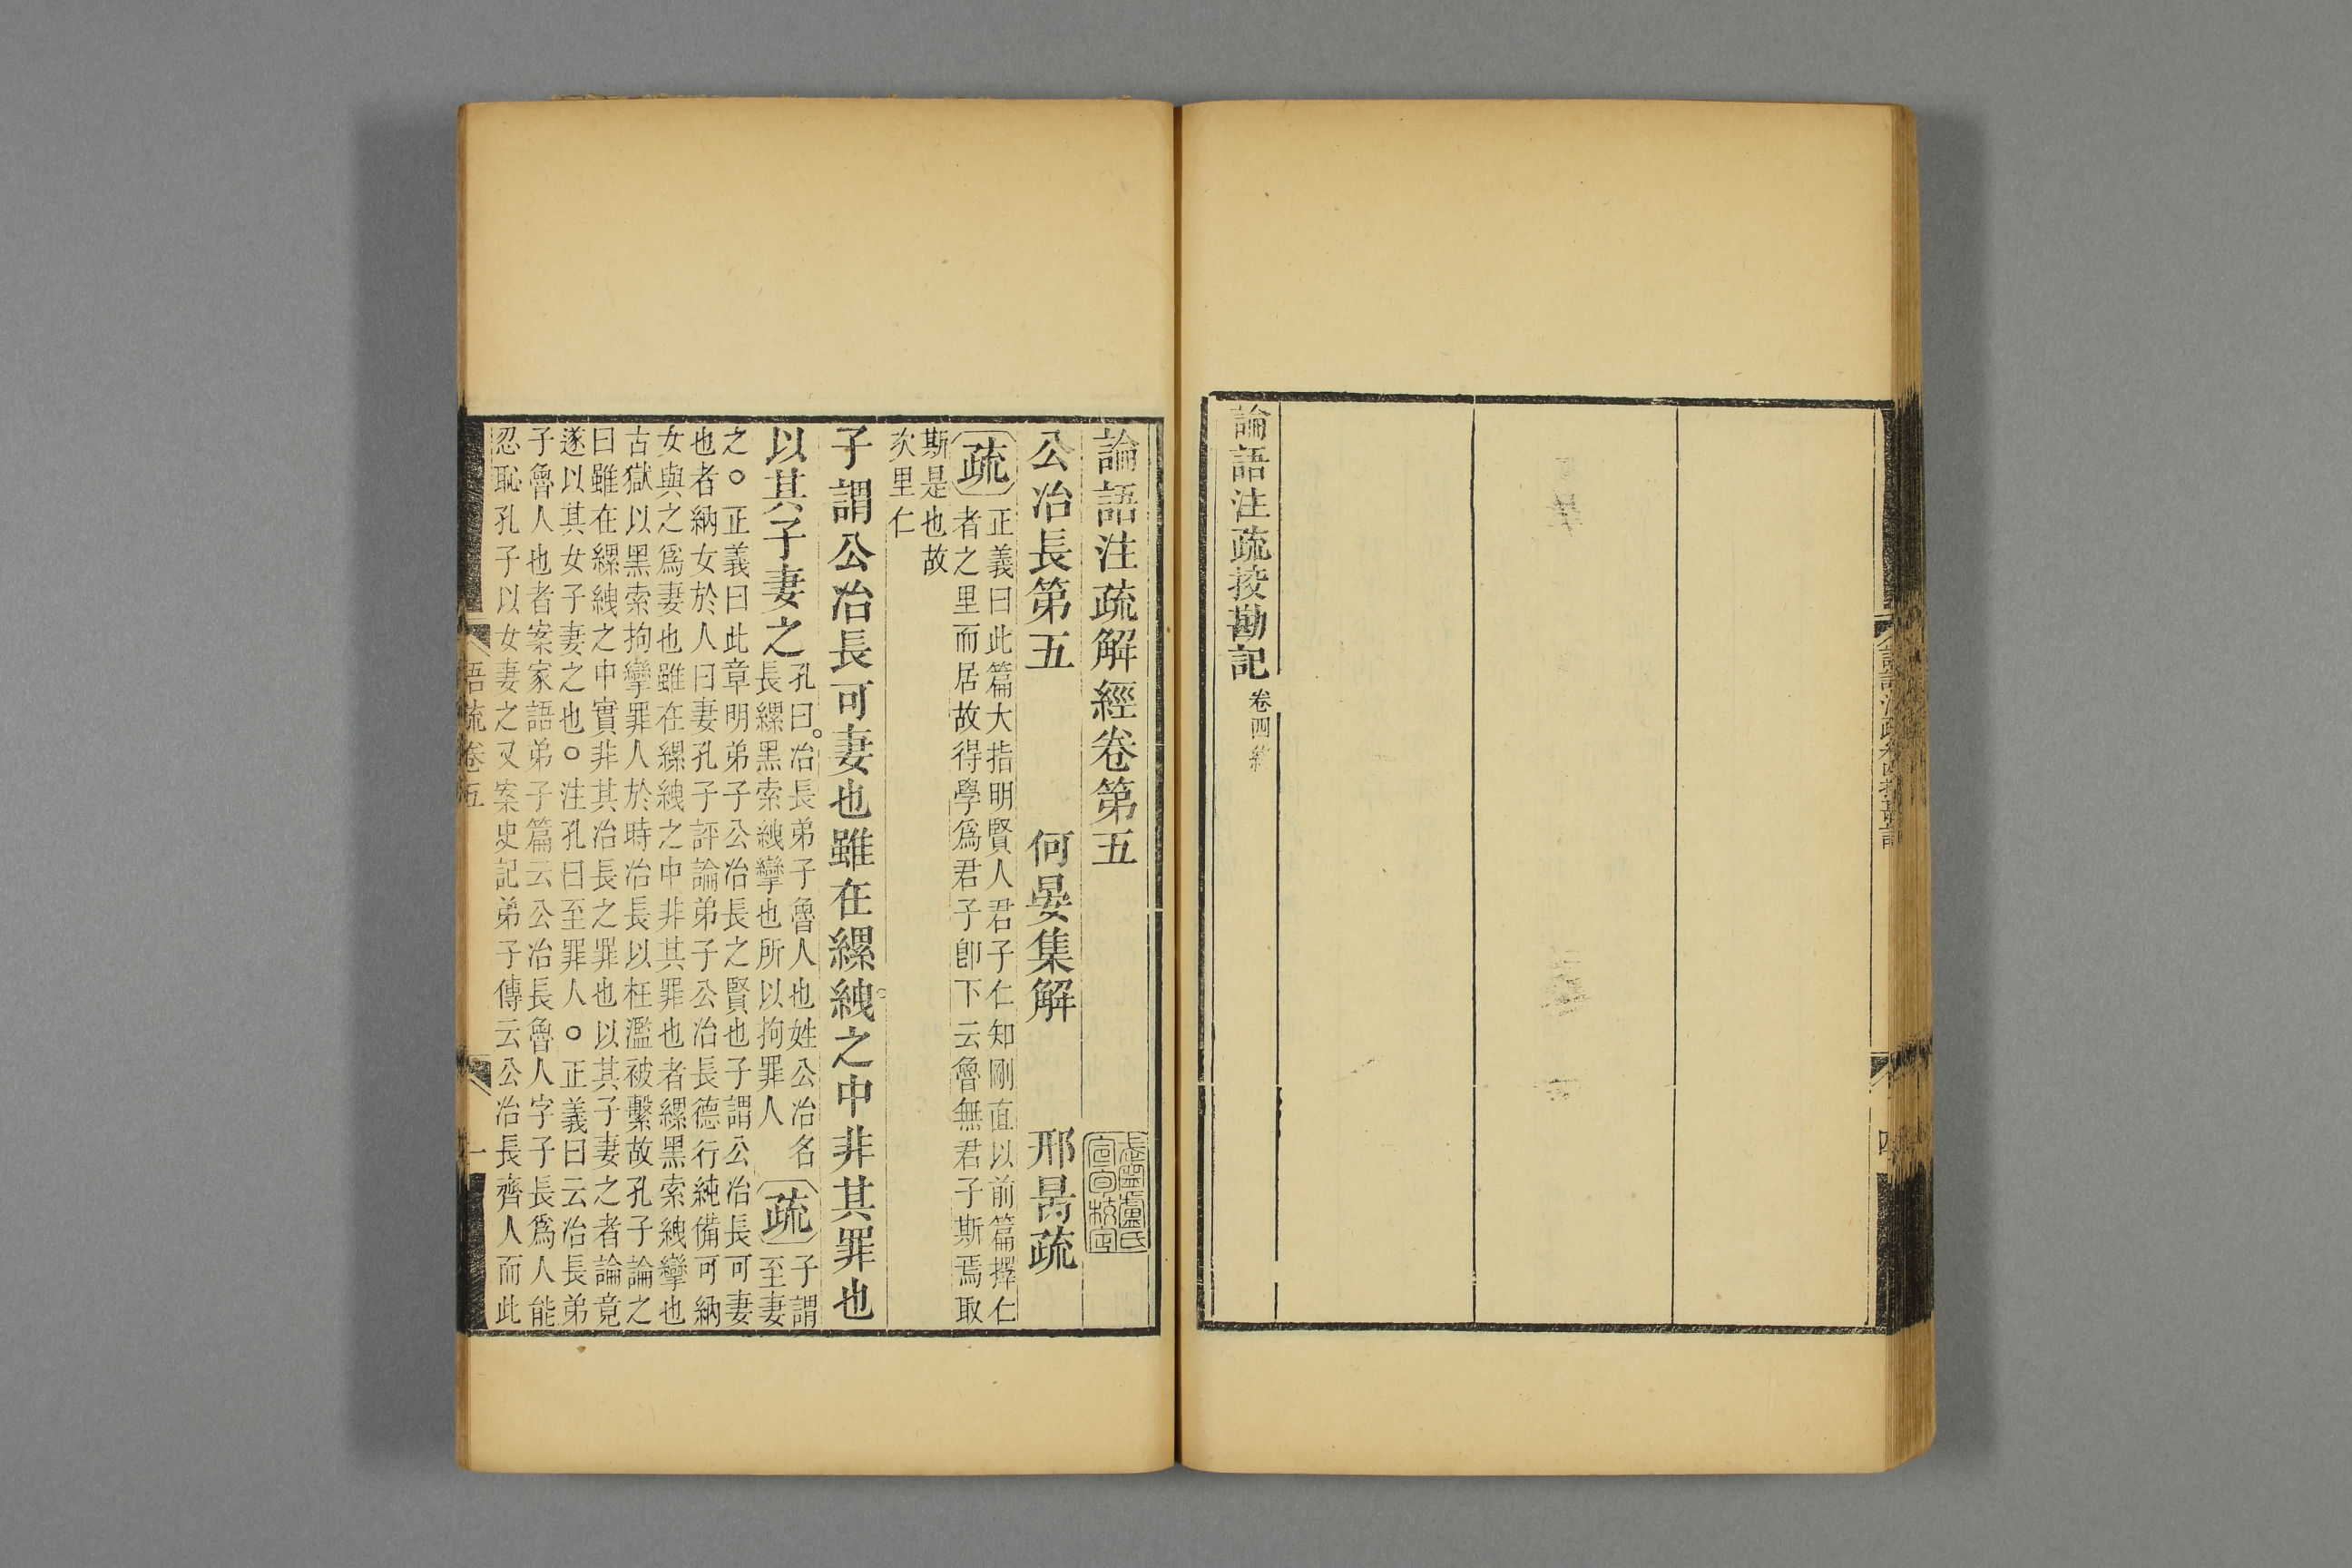 論語注疏挍勘記 卷四終
論語注疏解經卷第五
公冶長第五 何晏集解 邢昺疏
疏
正義曰此篇大指明賢人君子仁知剛直以前篇擇仁
者之里而居故得學爲君子卽下云魯無君子斯焉取
斯是也故
次里仁
子謂公冶長可妻也雖在縲絏之中非其罪也
以其子妻之
孔曰冶長弟子魯人也姓公冶名
長縲黑索絏攣也所以拘罪人
疏
子謂
至妻
之○正義曰此章明弟子公冶長之賢也子謂公冶長可妻
也者納女於人曰妻孔子評論弟子公冶長德行純備可納
女與之爲妻也雖在縲絏之中非其罪也者縲黑索絏攣也
古獄以黑索拘攣罪人於時冶長以枉濫被繫故孔子論之
曰雖在縲絏之中實非其冶長之罪也以其子妻之者論竟
遂以其女子妻之也○注孔曰至罪人○正義曰云冶長弟
子魯人也者案家語弟子篇云公冶長魯人字子長爲人能
忍恥孔子以女妻之又案史記弟子傳云公冶長齊人而此
語疏卷五
一